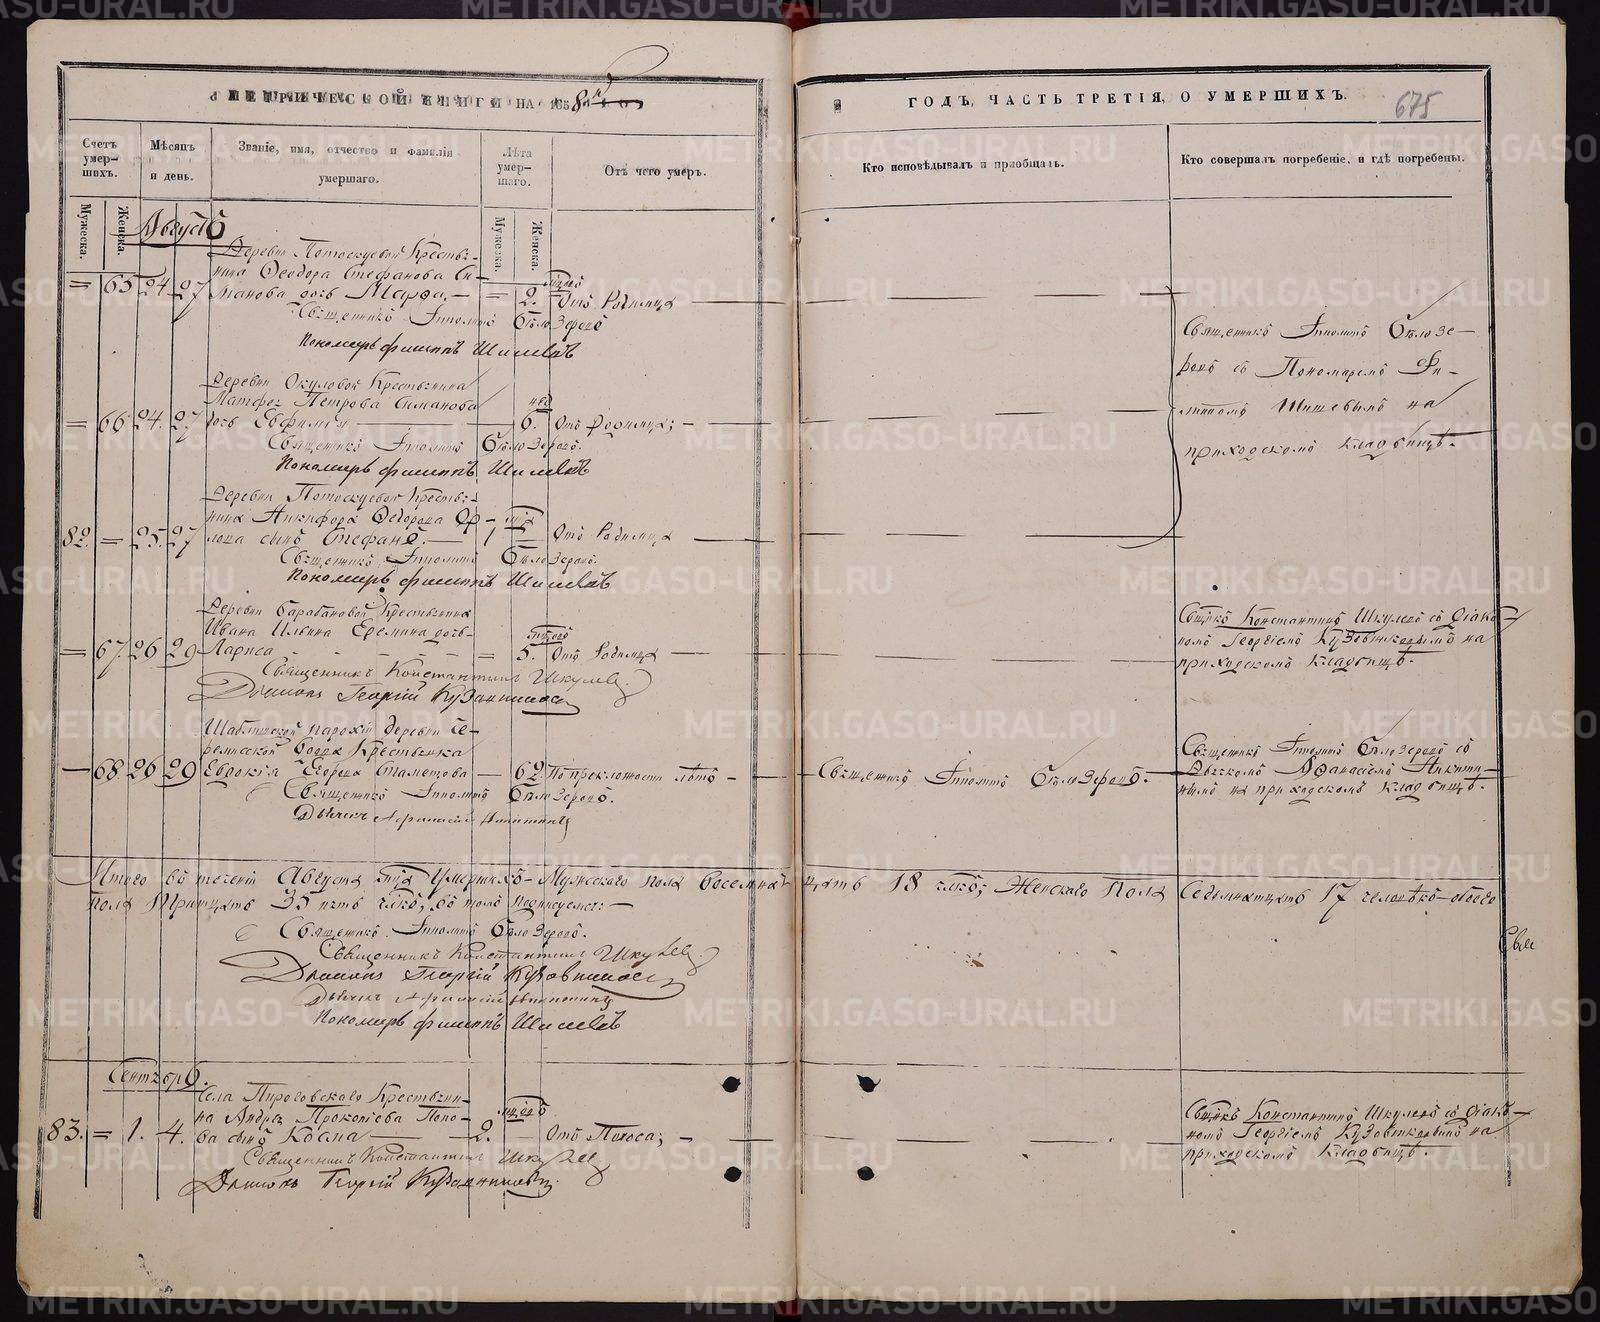 МЕТРИЧЕСКОЙ КНИГИ НА 1858й
ГОДЪ, ЧАСТЬ ТРЕТІЯ, О УМЕРШИХЪ.
675
Счетъ умер-
шихъ.
Мѣсяцъ
и день.
Званіе, имя, отчество и фамилія
умершаго.
Лѣта
умер-
шаго.
Отъ чего умеръ.
Кто исповѣдывалъ и пріобщалъ.
Кто совершалъ погребеніе, и гдѣ погребены.
Мужеска.
Женска.
Мужеска.
Женска.
Августъ
Деревни Потоскуевой Крестья-
нина Ѳеодора Стефанова Си-
= 65 24 27 манова дочь Марѳа, — = 2. Отъ Родимца
Священникъ Ипполитъ Бѣлозеровъ
Пономарь Филиппъ Шишевъ
Священникъ Ипполитъ Бѣлозе-
ровъ съ Пономаремъ Фи-
липпомъ Шишевымъ на
приходскомъ кладбищѣ.
Деревни Окуловой Крестьянина
Матфея Петрова Симанова
= 66 24. 27 дочь Евфимія 6. нед Отъ Родимца;
Священникъ Ипполитъ Бѣлозеровъ.
Пономарь Филиппъ Шишевъ
Деревни Потоскуевой Крестья-
нина Никифора Ѳедорова Ор-
82. = 25. 27 лова сынъ Стефанъ. 1 Отъ Родимца
Священникъ Ипполитъ Бѣлозеровъ.
Пономарь Филиппъ Шишевъ
Деревни Барабановой Крестьянина
Ивана Ильина Еремина дочь
= 67. 26 29 Лариса = 5. Отъ Родимца
Священникъ Константинъ Шкулевъ.
Діаконъ Георгій
Свщнкъ Константинъ Шкулевъ съ Діако-
номъ Георгіемъ на
приходскомъ кладбищѣ.
деревни Че-
ремисской Крестьянка
— 68 26 29 Евдокія Егорова — 62. По преклонности лѣтъ
Священникъ Ипполитъ Бѣлозеровъ.
Священникъ Ипполитъ Бѣлозеровъ.
Дьячекъ Афанасій Никитинъ
Священникъ Ипполитъ Бѣлозеровъ съ
Дьячкомъ Афанасіемъ Никити-
нымъ на приходскомъ кладбищѣ.
Итого въ теченіи Августа мца Умершихъ — Мужескаго пола восемнадцать 18 члкъ; Женскаго Пола Седьмнатцать 17 человѣкъ — обоего
пола Тритцать 35 пять члкъ, въ томъ подписуемся: —
Священникъ Ипполитъ Бѣлозеровъ.
Священникъ Константинъ Шкулевъ
Діаконъ Георгій
Дьячекъ Афанасій Никитинъ
Пономарь Филиппъ Шишевъ
Сентябрь.
Села Пироговскаго Крестьяни-
на Андрея Прокопіева Попо-
83. = 1. 4. ва сынъ — 2. — Отъ Поноса;
Священникъ Константинъ Шкулевъ
Діаконъ Георгій
Свщнкъ Константинъ Шкулевъ съ Діако-
номъ Георгіемъ на
приходскомъ кладбищѣ.
METRIKI.GASO-URAL.RU